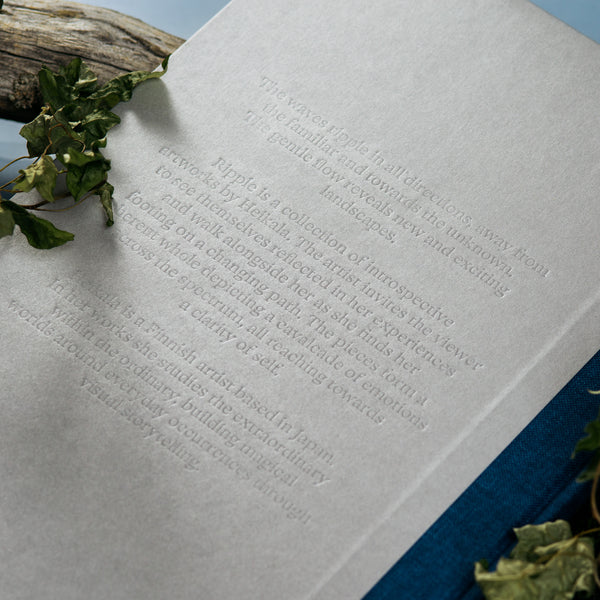 The waves ripple in all directions, away from
the familiar and towards the unknown.
The gentle flow reveals new and exciting
landscapes.
Ripple is a collection of introspective
artworks by Heikala. The artist invites the viewer
to see themselves reflected in her experiences
and walk alongside her as she finds her
footing on a changing path. The pieces form a
coherent whole depicting a cavalcade of emotions
across the spectrum, all reaching towards
a clarity of self.
Heikala is a Finnish artist based in Japan.
In her works she studies the extraordinary
within the ordinary, building magical
worlds around everyday occurrences through
visual storytelling.